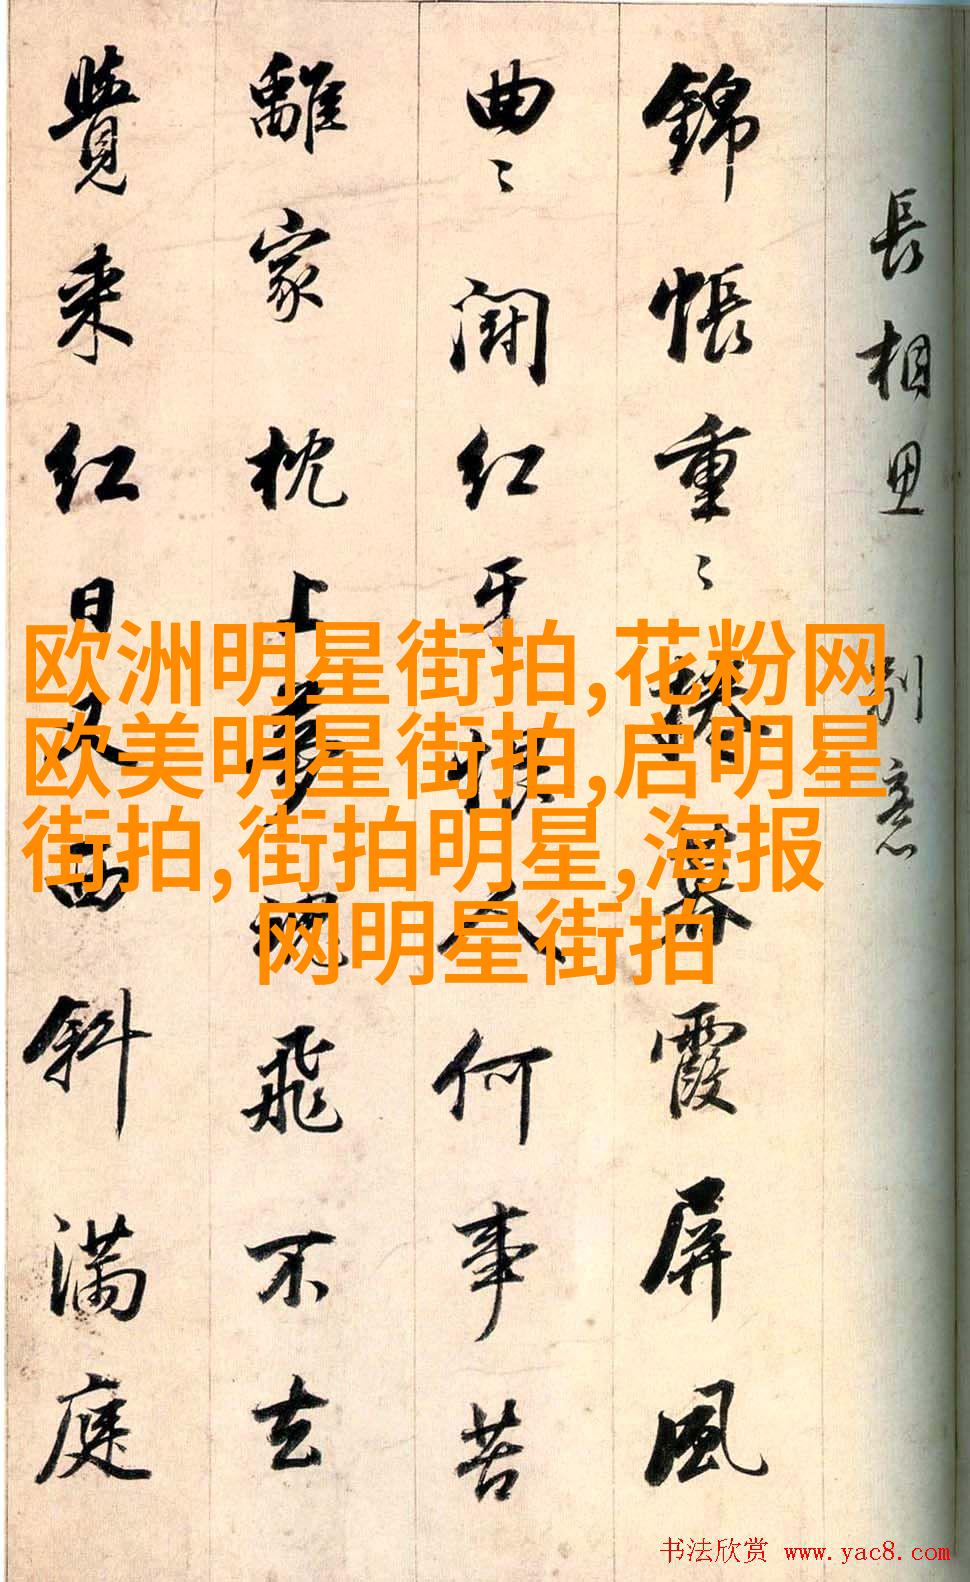 長相思 別意
錦帳重〻捲暮霞屏風
曲〻鬪紅牙恨人何事苦
離家枕上夢魂飛不去
覺來紅日又西斜滿庭
欧洲明星街拍,花粉网
欧美明星街拍,启明星
街拍,街拍明星,海报
网明星街拍
书法欣赏 www.yac8.com